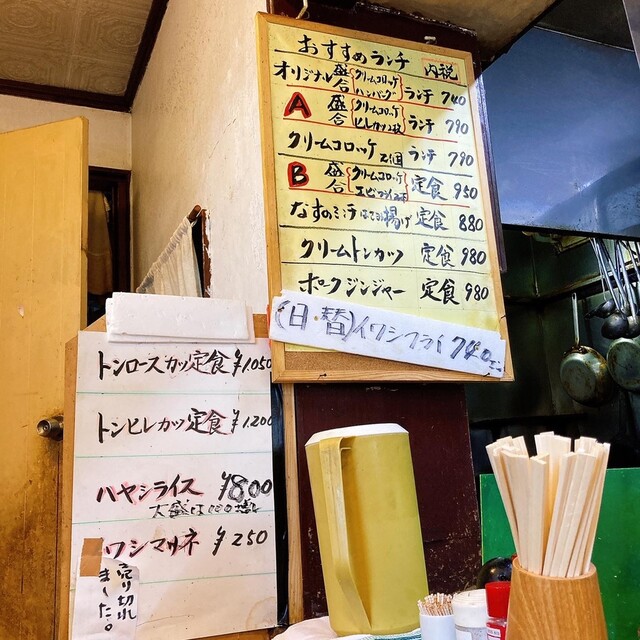 おすすめランチ 内税
オリジナル盛合 クリームコロッケ ハンバーグ ランチ 740
A 盛合 クリームコロッケ ヒレカツ2枚 ランチ 790
クリームコロッケ 2個 ランチ 790
B 盛合 クリームコロッケ エビフライ2本 定食 950
なすのミンチはさみ揚げ 定食 880
クリームトンカツ 定食 980
ポークジンジャー 定食 980
(日・替)イワシフライ 740
トンロースカツ定食 ¥1.050
トンヒレカツ定食 ¥1.200
ハヤシライス ¥800
大盛は100増し
ワシマサネ ¥250
売り切れ
ました。